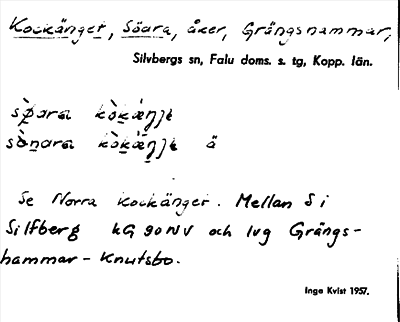 Kockänget, Södra, åker, Grängshammar,
Silvbergs sn, Falu doms. s. tg, Kopp. län.
ä
Se Norra Kockänget. Mellan S i
Silfberg kG 90 NV och lvg Grängs-
hammar - Knutsbo.
Inga Kvist 1957.